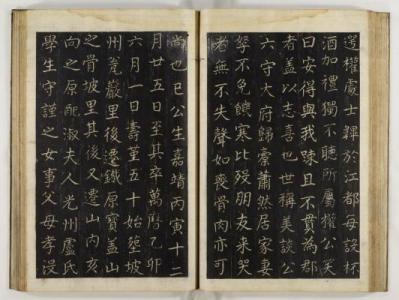 權處士韠於江都每設杯
酒加禮獨不聽所屬權公笑
曰安得與我疎且不貫為郡
者蓋以志喜也世稱美談公
六守大府歸橐蕭然居家妻
孥不免餓寒比歿朋友來哭
者無不失聲如喪骨肉亦可
尚也已公生嘉靖丙寅十二
月廿五日至其卒萬曆乙卯
六月一日壽堇五十始窆坡
州巖里後遷鐵原寶蓋山
之骨坡里其後又遷山內亥
向之原配淑夫人光州盧氏
學生守謹之女事父母孝没